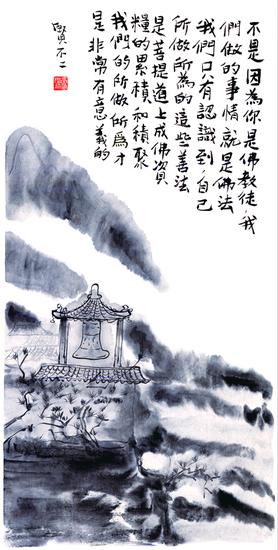 不是因為你是佛教徒，我
們做的事情就是佛法
我們只有認識到，自己
所做所為的這些善法
是菩提道上成佛資
糧的累積和積聚
我們的所做所爲才
是非常有意義的
不二